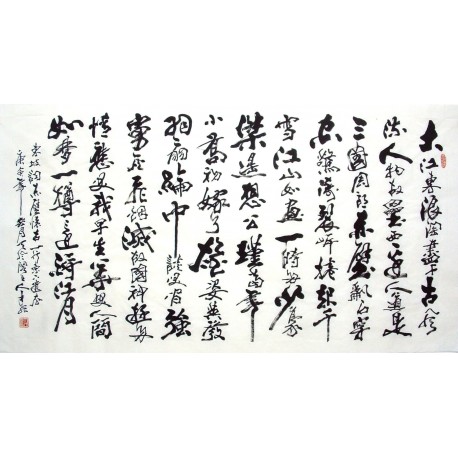 大江東浪淘盡千古風
流人物故壘西邊人道是
三國周郎赤壁亂石穿
空驚濤裂岸捲起千
雪江山如畫一時多少豪
傑遙想公瑾當年
小喬初嫁了雄姿英發
羽扇綸巾談笑間強
虜灰飛烟滅故國神遊多
情應笑我早生華髮人間
如夢一樽還酹江月
東坡詞赤壁懷古一